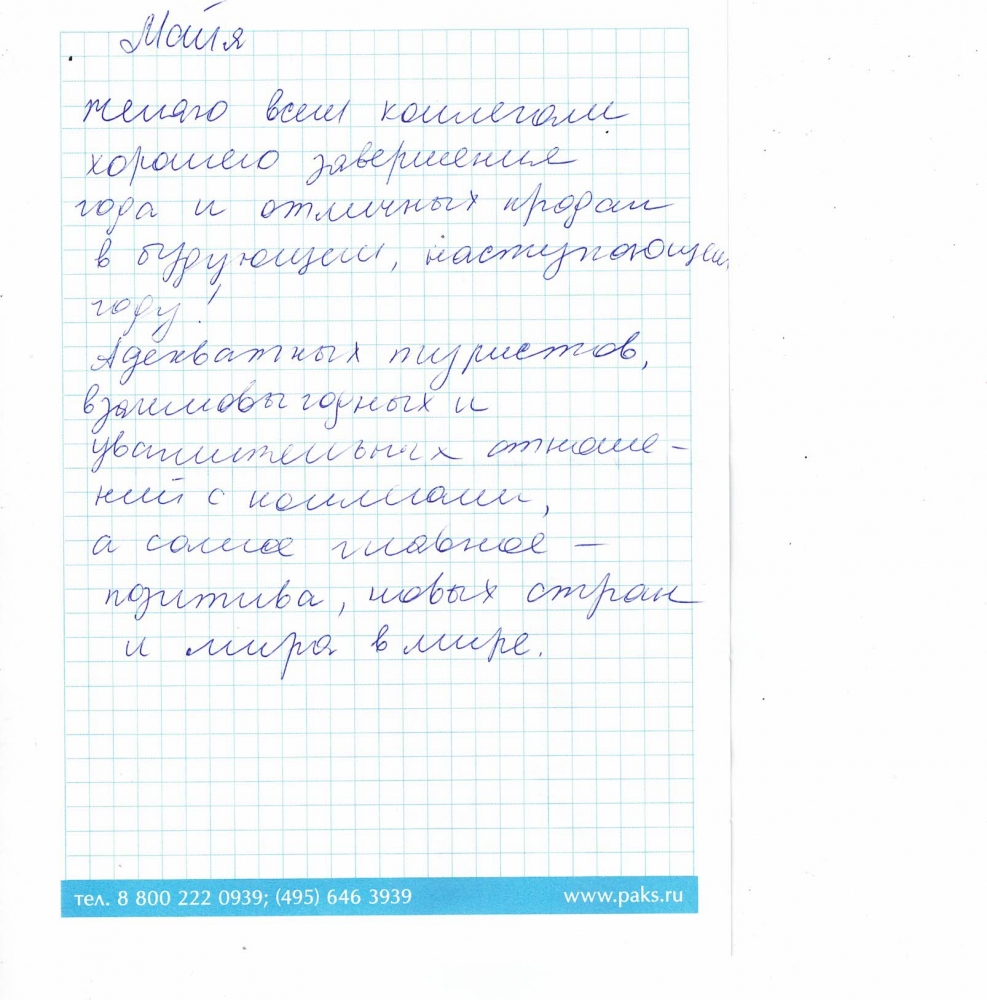 Майя
желаю всем коллегам
хорошего завершения
года и отличных продаж
в будующем, наступающем
году!
Адекватных туристов,
взаимовыгодных и
уважительных отноше-
ний с коллегами,
а самое главное –
позитива, новых стран
и мира в мире.
тел. 8 800 222 0939; (495) 646 3939 www.paks.ru